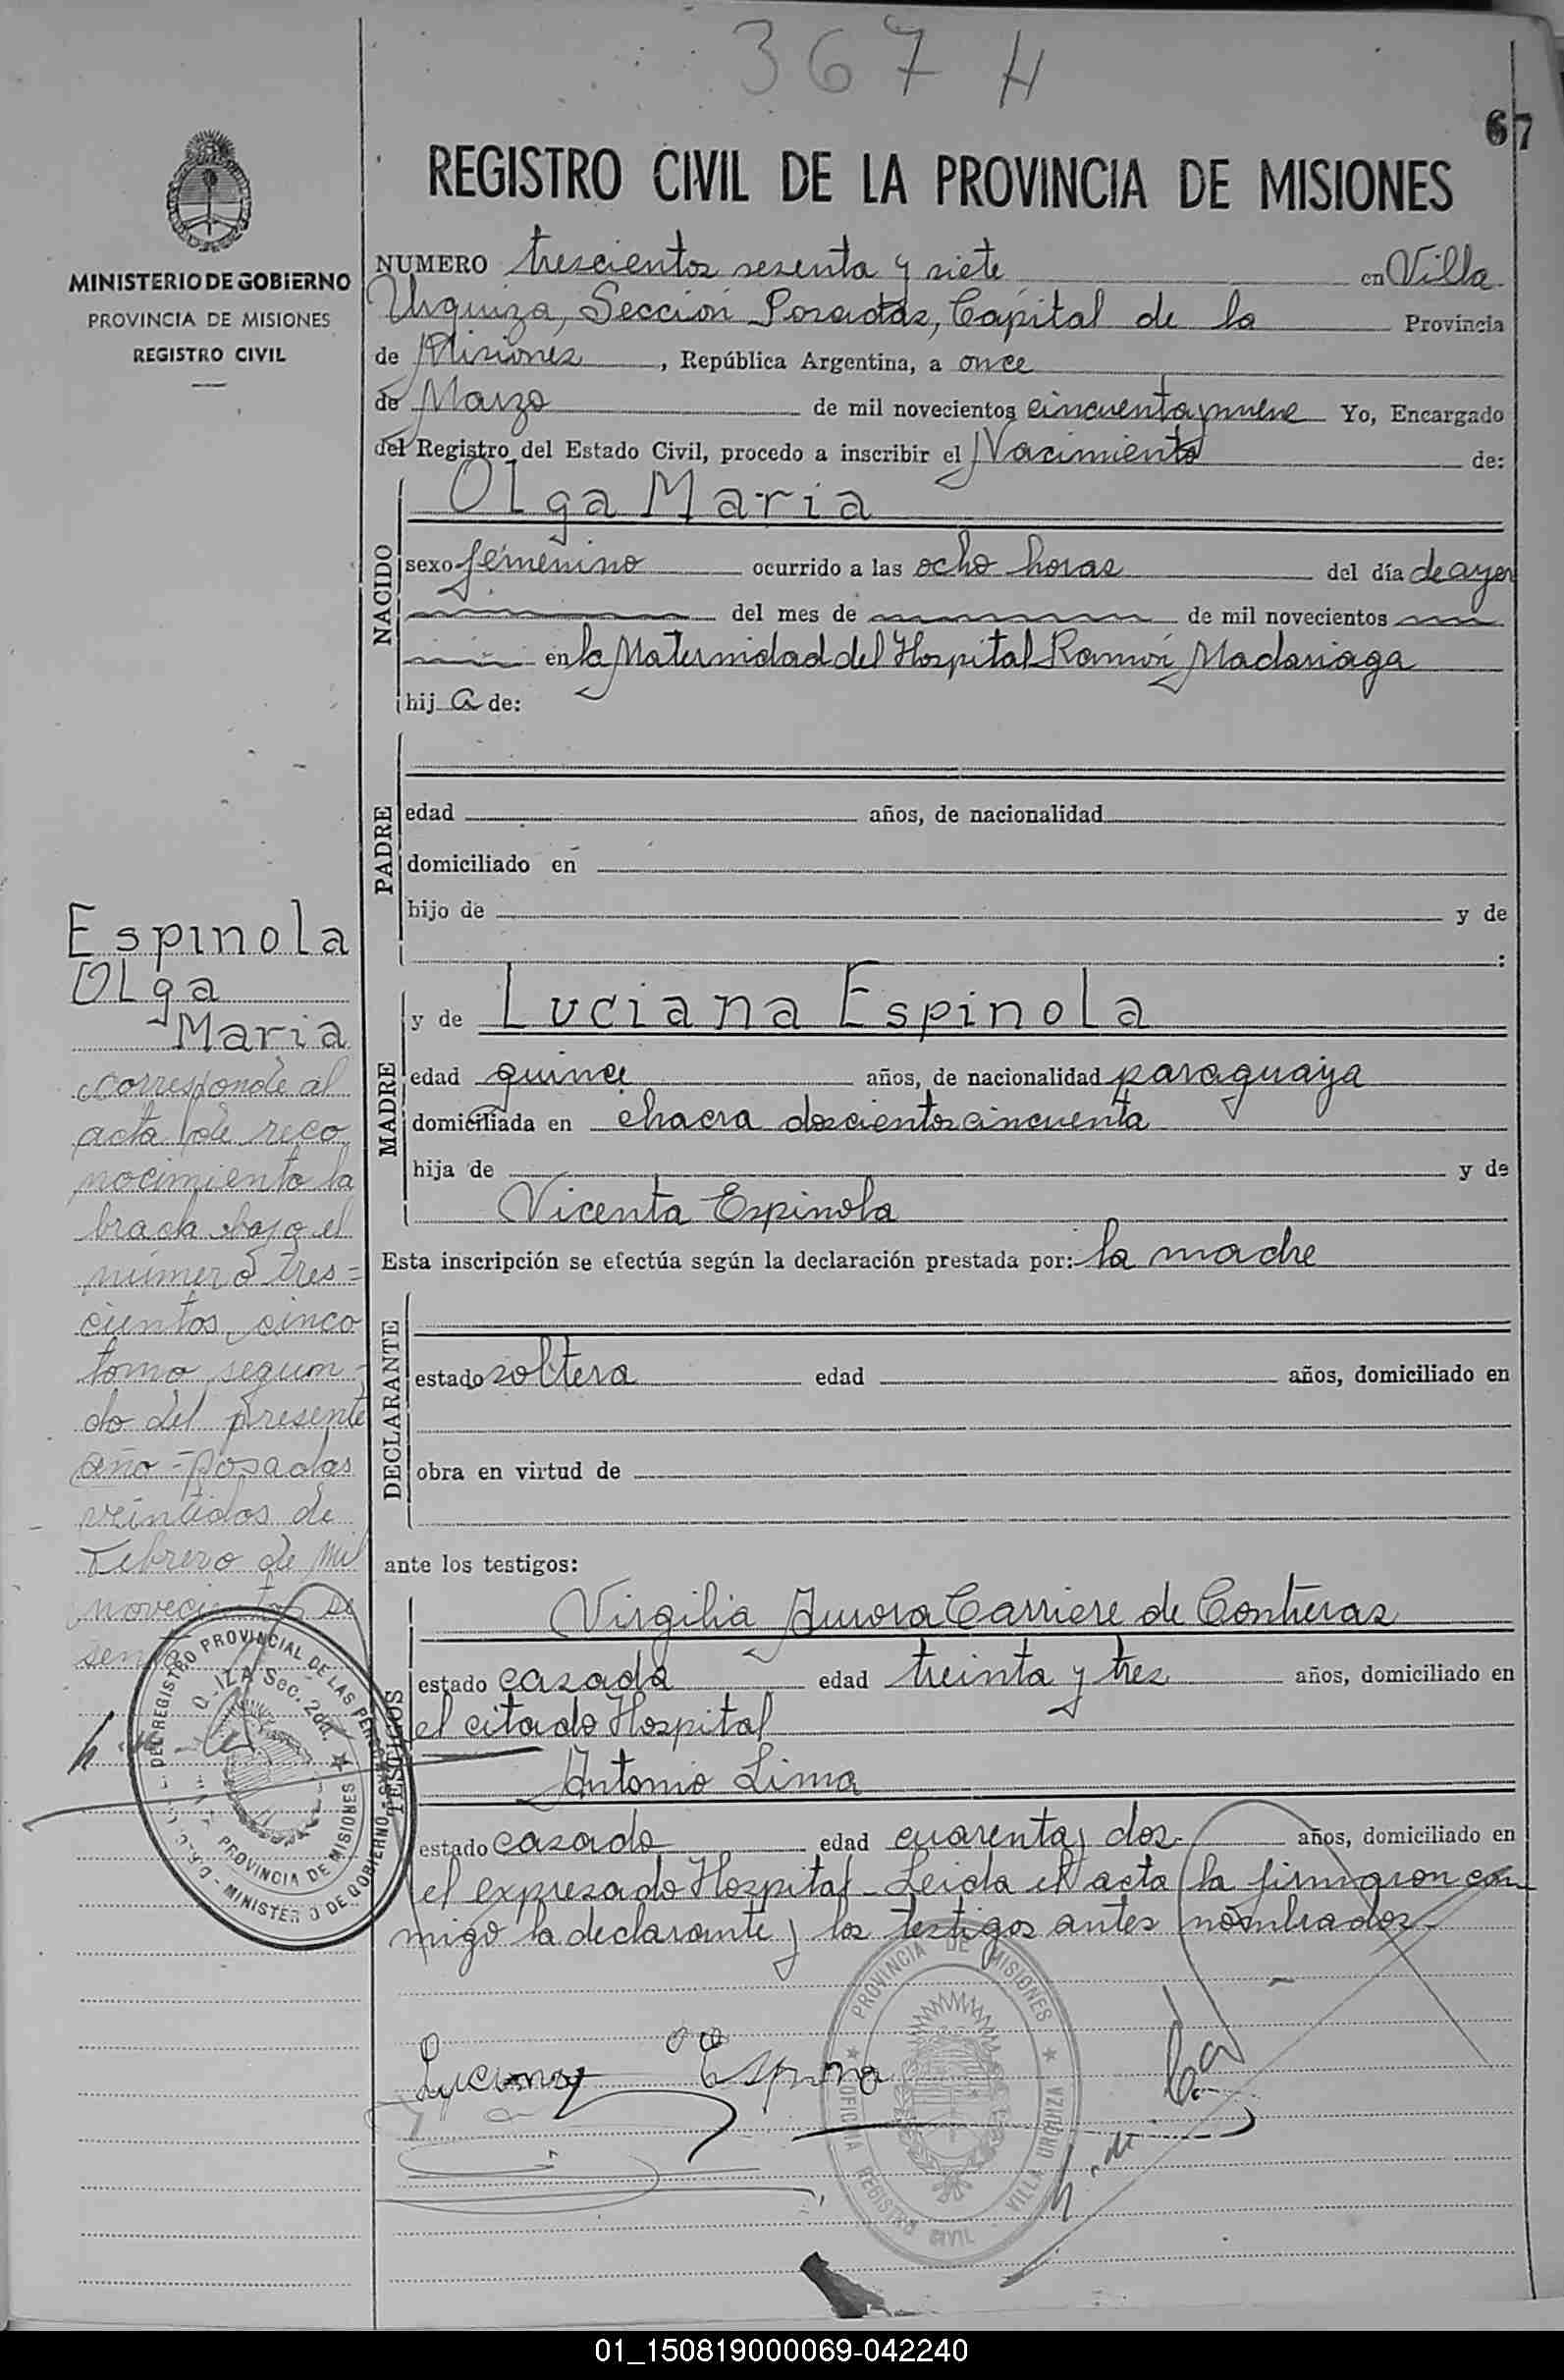 367 H
67
REGISTRO CIVIL DE LA PROVINCIA DE MISIONES
MINISTERIO DE GOBIERNO
PROVINCIA DE MISIONES
REGISTRO CIVIL
NUMERO trescientos sesenta y siete en Villa
Urquiza, Sección Posadas, Capital de la Provincia
de Misiones, República Argentina, a once
de Marzo de mil novecientos cincuenta y nueve Yo, Encargado
del Registro del Estado Civil, procedo a inscribir el Nacimiento de:
NACIDO
Olga Maria
sexo femenino ocurrido a las ocho horas del día de ayer
del mes de de mil novecientos
en la Maternidad del Hospital Ramón Madariaga
hij a de:
PADRE
edad años, de nacionalidad
domiciliado en
hijo de y de
:
Espinola
Olga
Maria
corresponde al
acta de reco
nocimiento la
brada bajo el
número tres=
cientos cinco
tomo segun-
do del presente
año - Posadas
veintidos de
Febrero de mil
novecientos se
senta
MADRE
y de Luciana Espinola
edad quince años, de nacionalidad paraguaya
domiciliada en chacra doscientos cincuenta
hija de y de
Vicenta Espinola
Esta inscripción se efectúa según la declaración prestada por: la madre
DECLARANTE
estado soltera edad años, domiciliado en
obra en virtud de
ante los testigos:
TESTIGOS
Virgilia Aurora Carriere de Contreras
estado casada edad treinta y tres años, domiciliado en
el citado Hospital
Antonio Lima
estado casado edad cuarenta y dos años, domiciliado en
el expresado Hospital - Leida el acta la firmaron con
migo la declarante y los testigos antes nombrados-
DEL REGISTRO PROVINCIAL DE LAS
Sec. 2da.
PROVINCIA DE MISIONES
MINISTERIO DE GOBIERNO
Luciana Espinola
PROVINCIA DE MISIONES
OFICINA REGISTRO CIVIL - VILLA URQUIZA
01_150819000069-042240